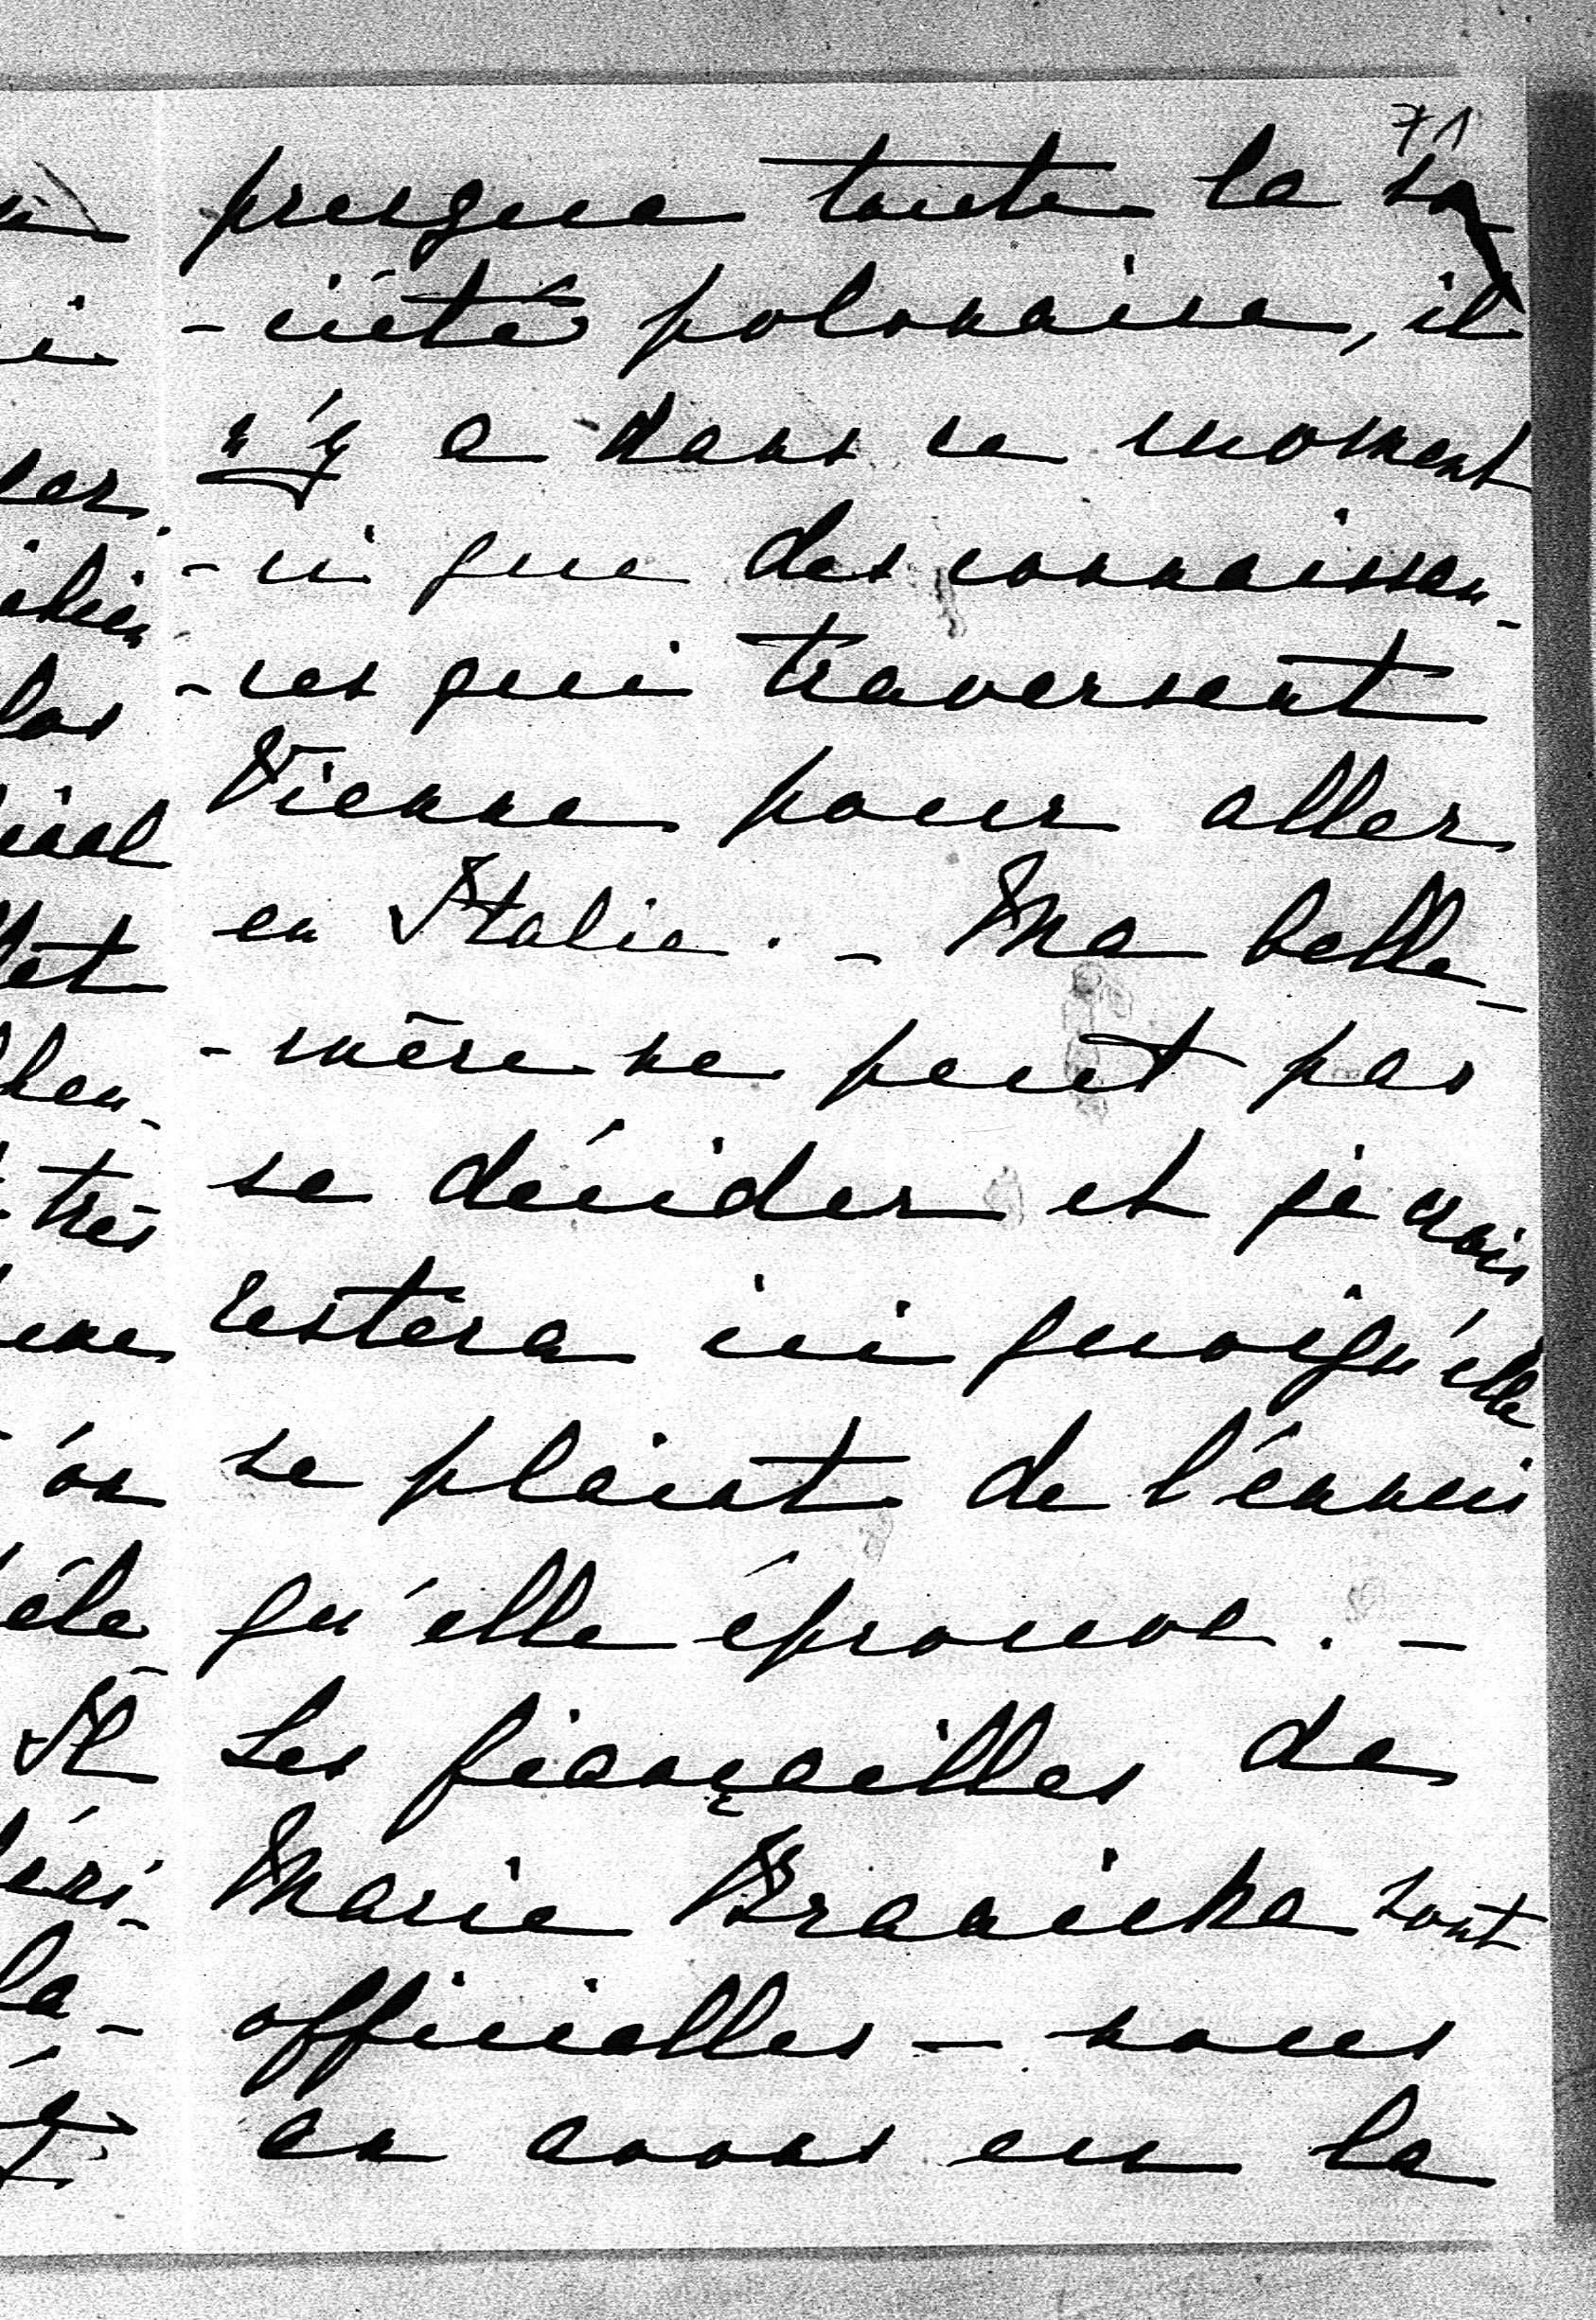 71
presque toute la so
-ciété polonaise, il
n'y a dans ce moment
-ci que des connaissan-
-ces qui traversent
Vienne pour aller
en Italie. - Ma belle-
-mère ne peut pas
se décider et je crois
restera ici quoiqu'elle
se plaint de l'énnui
qu'elle éprouve. -
Les fiançailles de
Marie Branicka sont
officielles - nous
en avons eu la